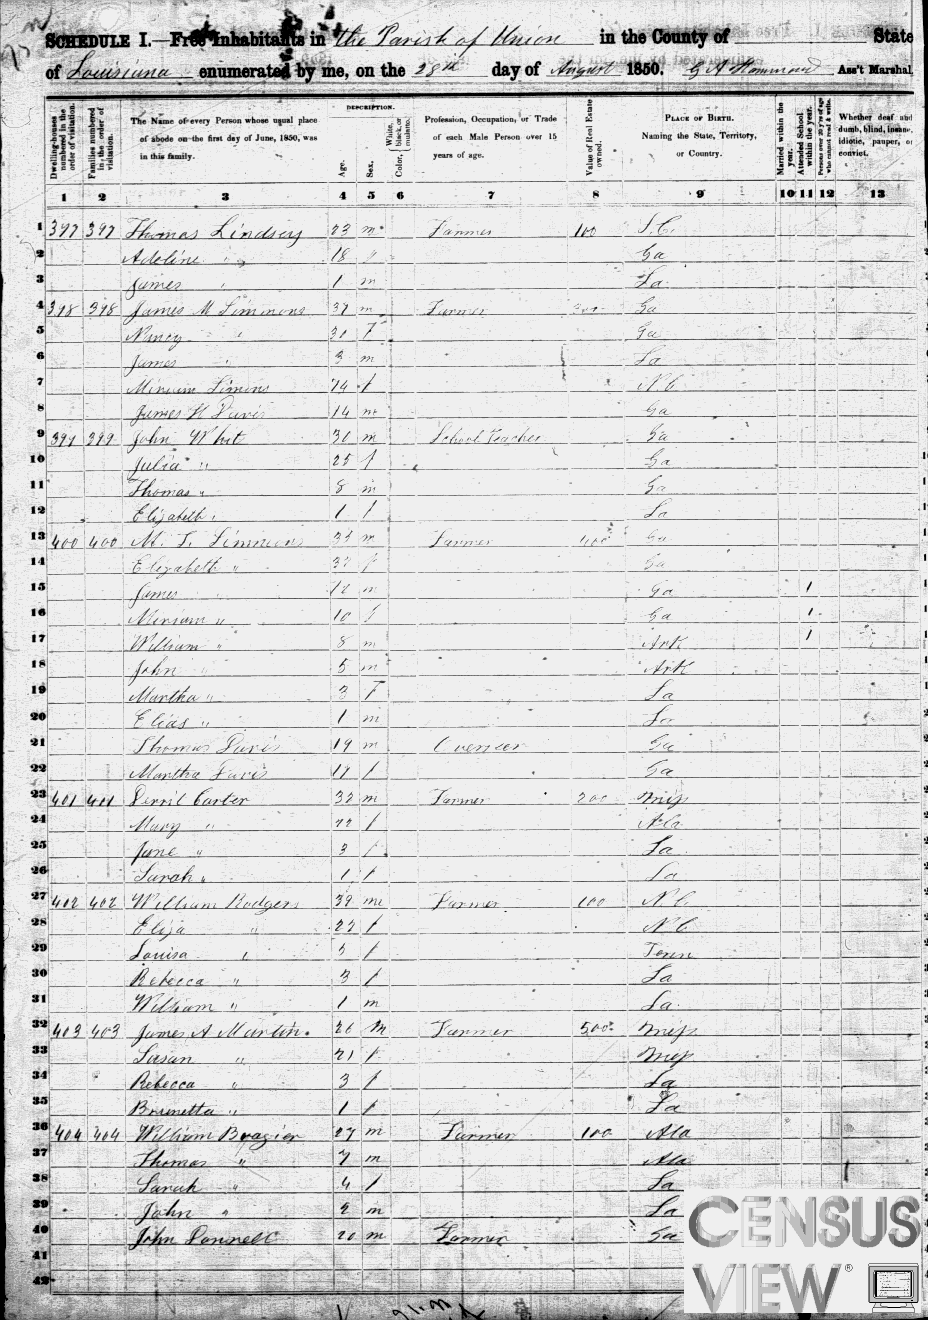 SCHEDULE I.—Free Inhabitants in the Parish of Union in the County of State
of Louisiana enumerated by me, on the 28th day of August 1850. Ass't Marshal.
DESCRIPTION.
Dwelling-houses numbered in the order of visitation.
Families numbered in the order of visitation.
The Name of every Person whose usual place of abode on the first day of June, 1850, was in this family.
Age.
Sex.
Color, White, black, or mulatto.
Profession, Occupation, or Trade of each Male Person over 15 years of age.
Value of Real Estate owned.
PLACE OF BIRTH. Naming the State, Territory, or Country.
Married within the year.
Attended School within the year.
Persons over 20 y'rs of age who cannot read & write.
Whether deaf and dumb, blind, insane, idiotic, pauper, or convict.
1 2 3 4 5 6 7 8 9 10 11 12 13
1 397 397 Thomas Lindsey 23 m Farmer 100 S.C.
2 Adeline " 18 Ga
3 James " 1 m La
4 398 398 James M Simmons 37 m Farmer Ga
5 Nancy " 30 f Ga
6 James " 3 m La
7 Miriam Simons 74 f N.C
8 James H Davis 14 m Ga
9 399 399 John Whit 30 m School Teacher Ga
10 Julia " 25 f Ga
11 Thomas " 8 m Ga
12 Elizabeth " 1 f La
13 400 400 M. T. Simmons m Farmer 400 Ga
14 Elizabeth " f Ga
15 James 12 m Ga 1
16 Miriam " 10 f Ga 1
17 William " 8 m Ark 1
18 John " 5 m Ark
19 Martha " 3 f La
20 Elias " 1 m La
21 Thomas Davis 19 m Overseer Ga
22 Martha Davis 17 f Ga
23 401 401 Derril Carter 32 m Farmer 200 Miss
24 Mary " 22 f Ala
25 Jane " 3 f La
26 Sarah " 1 f La
27 402 402 William Rodgers 39 m Farmer 100 N.C
28 Eliza " f N C
29 Louisa " 5 f Tenn
30 Rebecca " 3 f La
31 William " 1 m La
32 403 403 James A Martin 26 m Farmer 500 Miss
33 Susan " 21 f Miss
34 Rebecca " 3 f La
35 Brunetta " 1 f La
36 404 404 William Brazier 27 m Farmer 100 Ala
37 Thomas " 7 m Ala
38 Sarah " 4 f La
39 John " 2 m La
40 John Donnell 20 m Farmer Ga
41
42
CENSUS
VIEW®